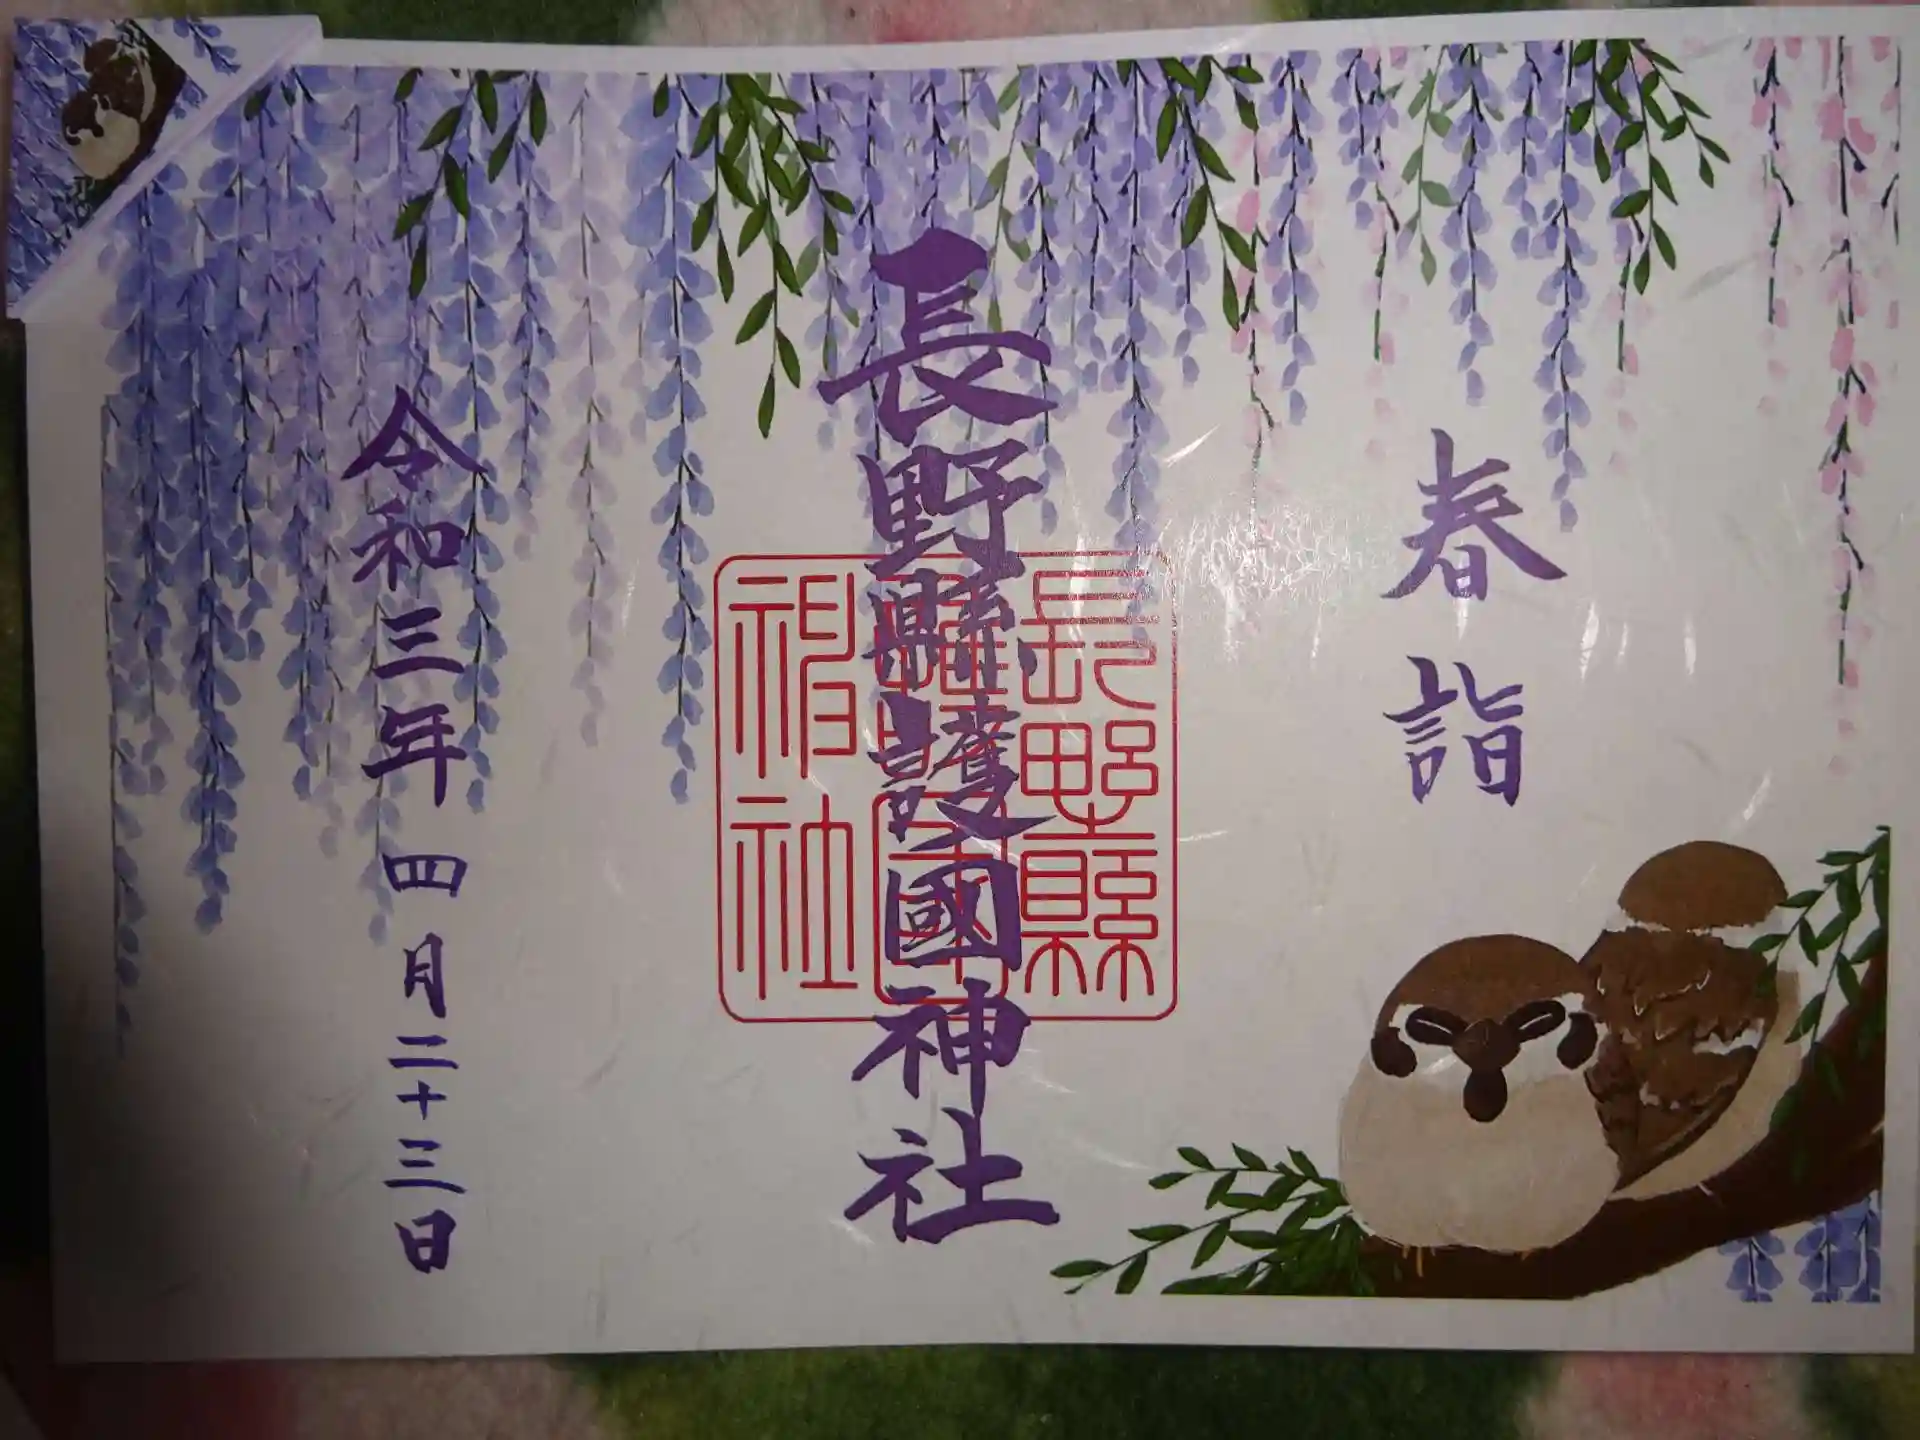 春詣
長野縣護國神社
長野縣
護國
神社
令和三年四月二十三日